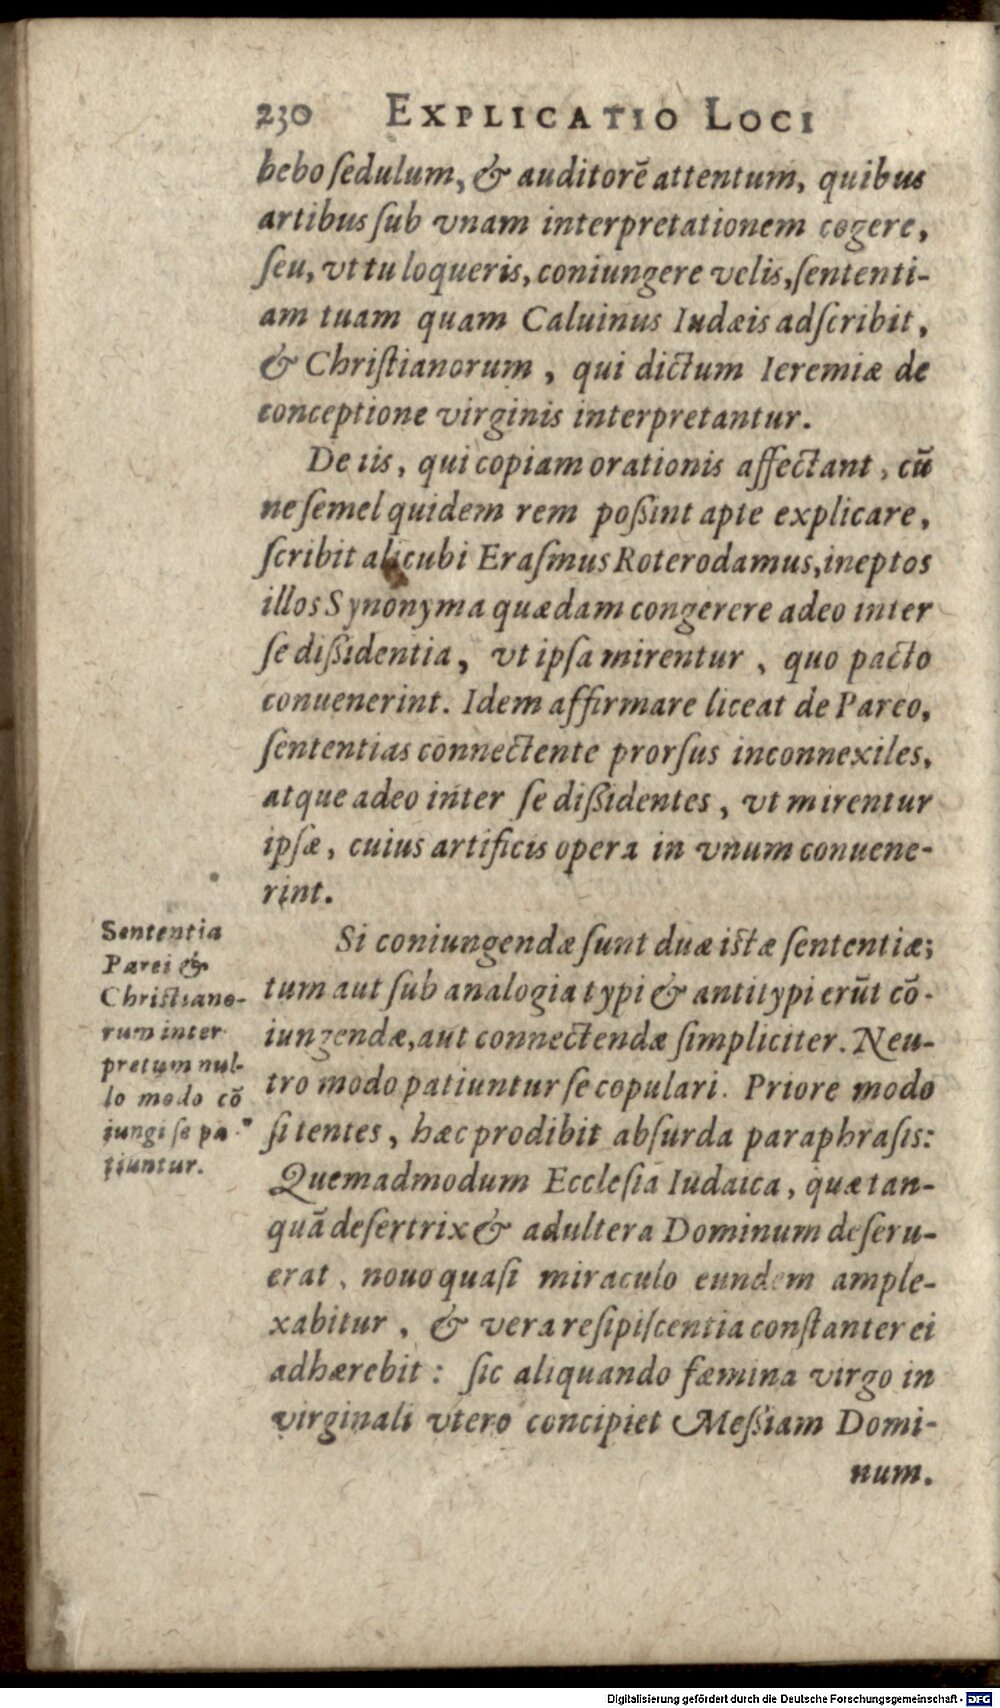 230 EXPLICATIO LOCI
bebo sedulum, & auditorē attentum, quibus
artibus sub vnam interpretationem cogere,
seu, vt tu loqueris, coniungere velis, sententi-
am tuam quam Caluinus Iudæis adscribit,
& Christianorum, qui dictum Ieremiæ de
conceptione virginis interpretantur.
De iis, qui copiam orationis affectant, cū
ne semel quidem rem poßint apte explicare,
scribit alicubi Erasmus Roterodamus, ineptos
illos Synonyma quædam congerere adeo inter
se dißidentia, vt ipsa mirentur, quo pacto
conuenerint. Idem affirmare liceat de Pareo,
sententias connectente prorsus inconnexiles,
atque adeo inter se dißidentes, vt mirentur
ipsæ, cuius artificis opera in vnum conuene-
rint.
Sententia
Parei &
Christiano-
rum inter
pretum nul-
lo modo cō
iungi se pa
tiuntur.
Si coniungendæ sunt duæ istæ sententiæ;
tum aut sub analogia typi & antitypi erūt cō-
iungendæ, aut connectendæ simpliciter. Neu-
tro modo patiuntur se copulari. Priore modo
si tentes, hæc prodibit absurda paraphrasis:
Quemadmodum Ecclesia Iudaica, quæ tan-
quā desertrix & adultera Dominum deseru-
erat, nouo quasi miraculo eundem ample-
xabitur, & vera resipiscentia constanter ei
adhærebit: sic aliquando fæmina virgo in
virginali vtero concipiet Meßiam Domi-
num.
Digitalisierung gefördert durch die Deutsche Forschungsgemeinschaft - DFG